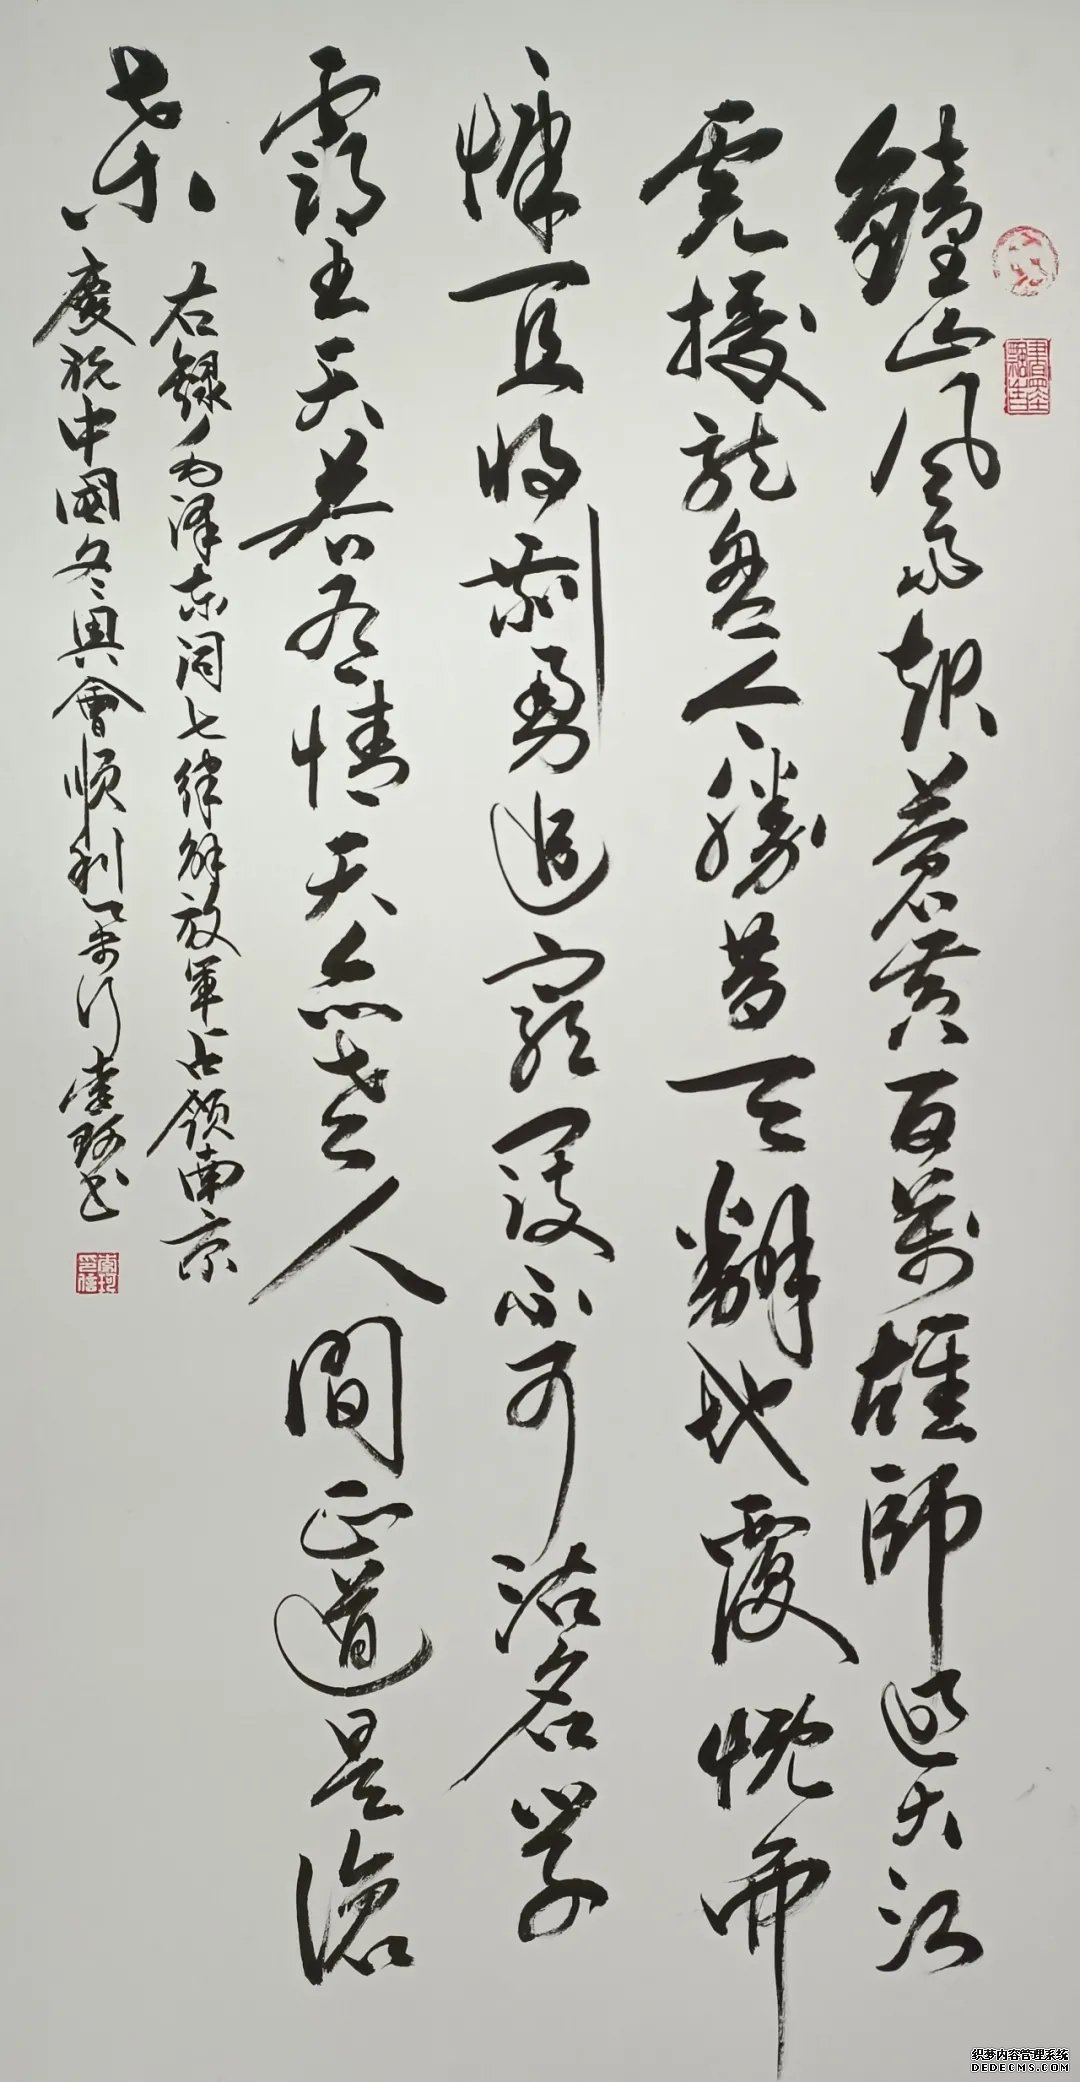 鐘山風雨起蒼黃百萬雄師過大江
虎據龍盤今勝昔天翻地覆慨而
慷宜將剩勇追窮寇不可沽名學
霸王天若有情天亦老人間正道是滄
桑
右録毛澤东詞七律解放軍占領南京
慶祝中國冬奥會順利舉行李珂书
李珂印信
织梦内容管理系统
DEDECMS.COM